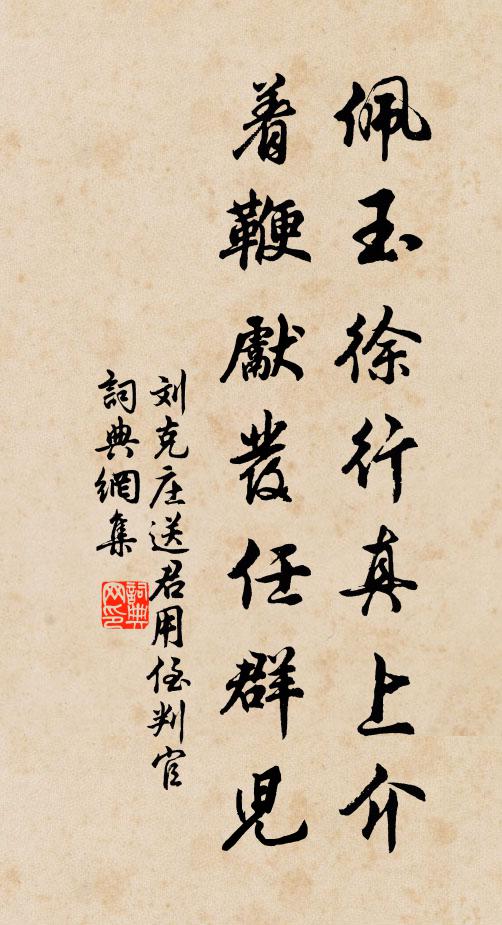 佩玉徐行真上介
着鞭獻發任群児
刘克庄送君用侄判官
詞典網集
詞典网印